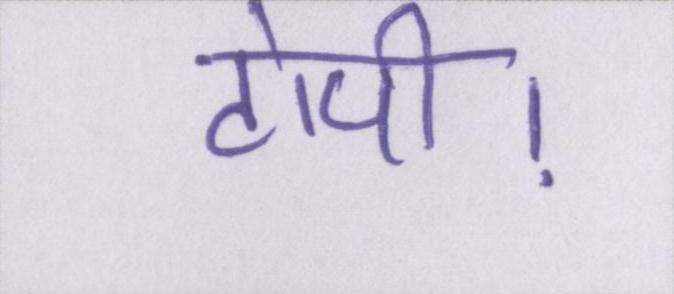 टोपी!